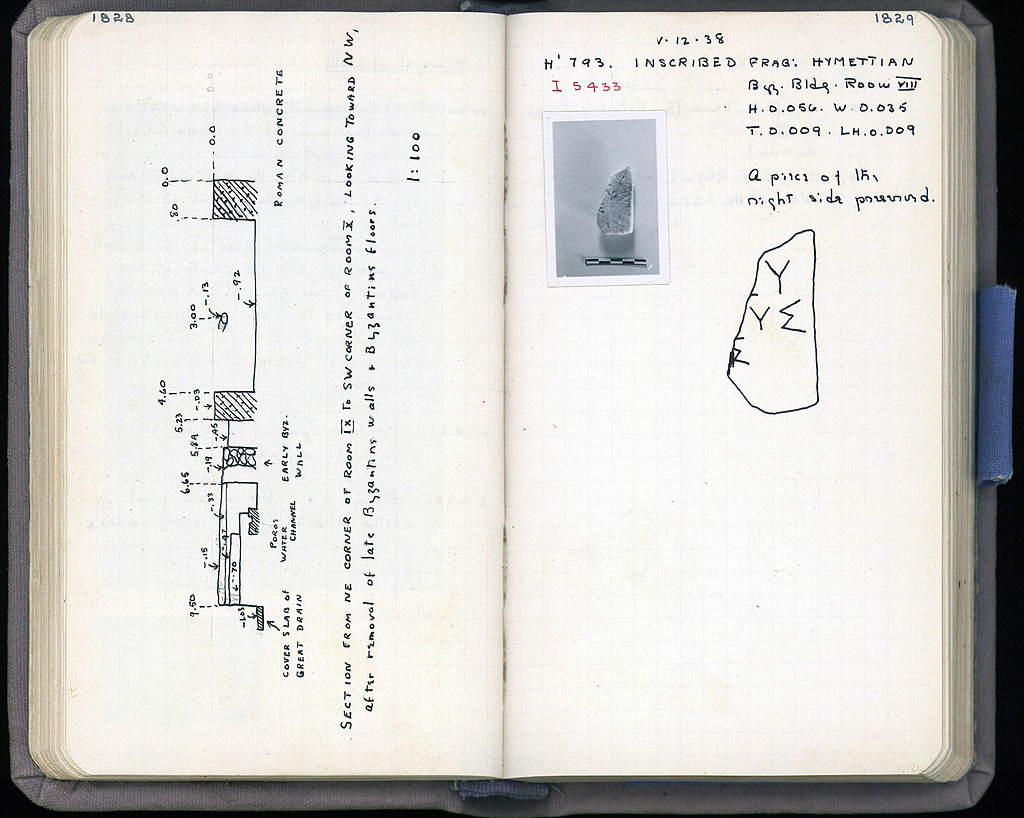 1828
0.0
0.0
0.0
.80
ROMAN CONCRETE
3.00
-.13
-.92
4.60
-.03
5.23
-.45
5.89
-.19
EARLY BYZ.
WALL
6.65
-.33
-.47
-.70
-.15
POROS
WATER
CHANNEL
9.50
-1.03
COVER SLAB of
GREAT DRAIN
SECTION FROM NE CORNER OF ROOM IX TO SW CORNER OF ROOM X, LOOKING TOWARD NW,
after removal of late Byzantine walls + Byzantine floors.
1:100
1829
V·12·38
H' 793. INSCRIBED FRAG: HYMETTIAN
I 5433
Byz. Bldg. Room VIII
H. 0.056. W. 0.035
T. 0.009. LH. 0.009
A piece of the
right side preserved.
Υ
Υ Σ